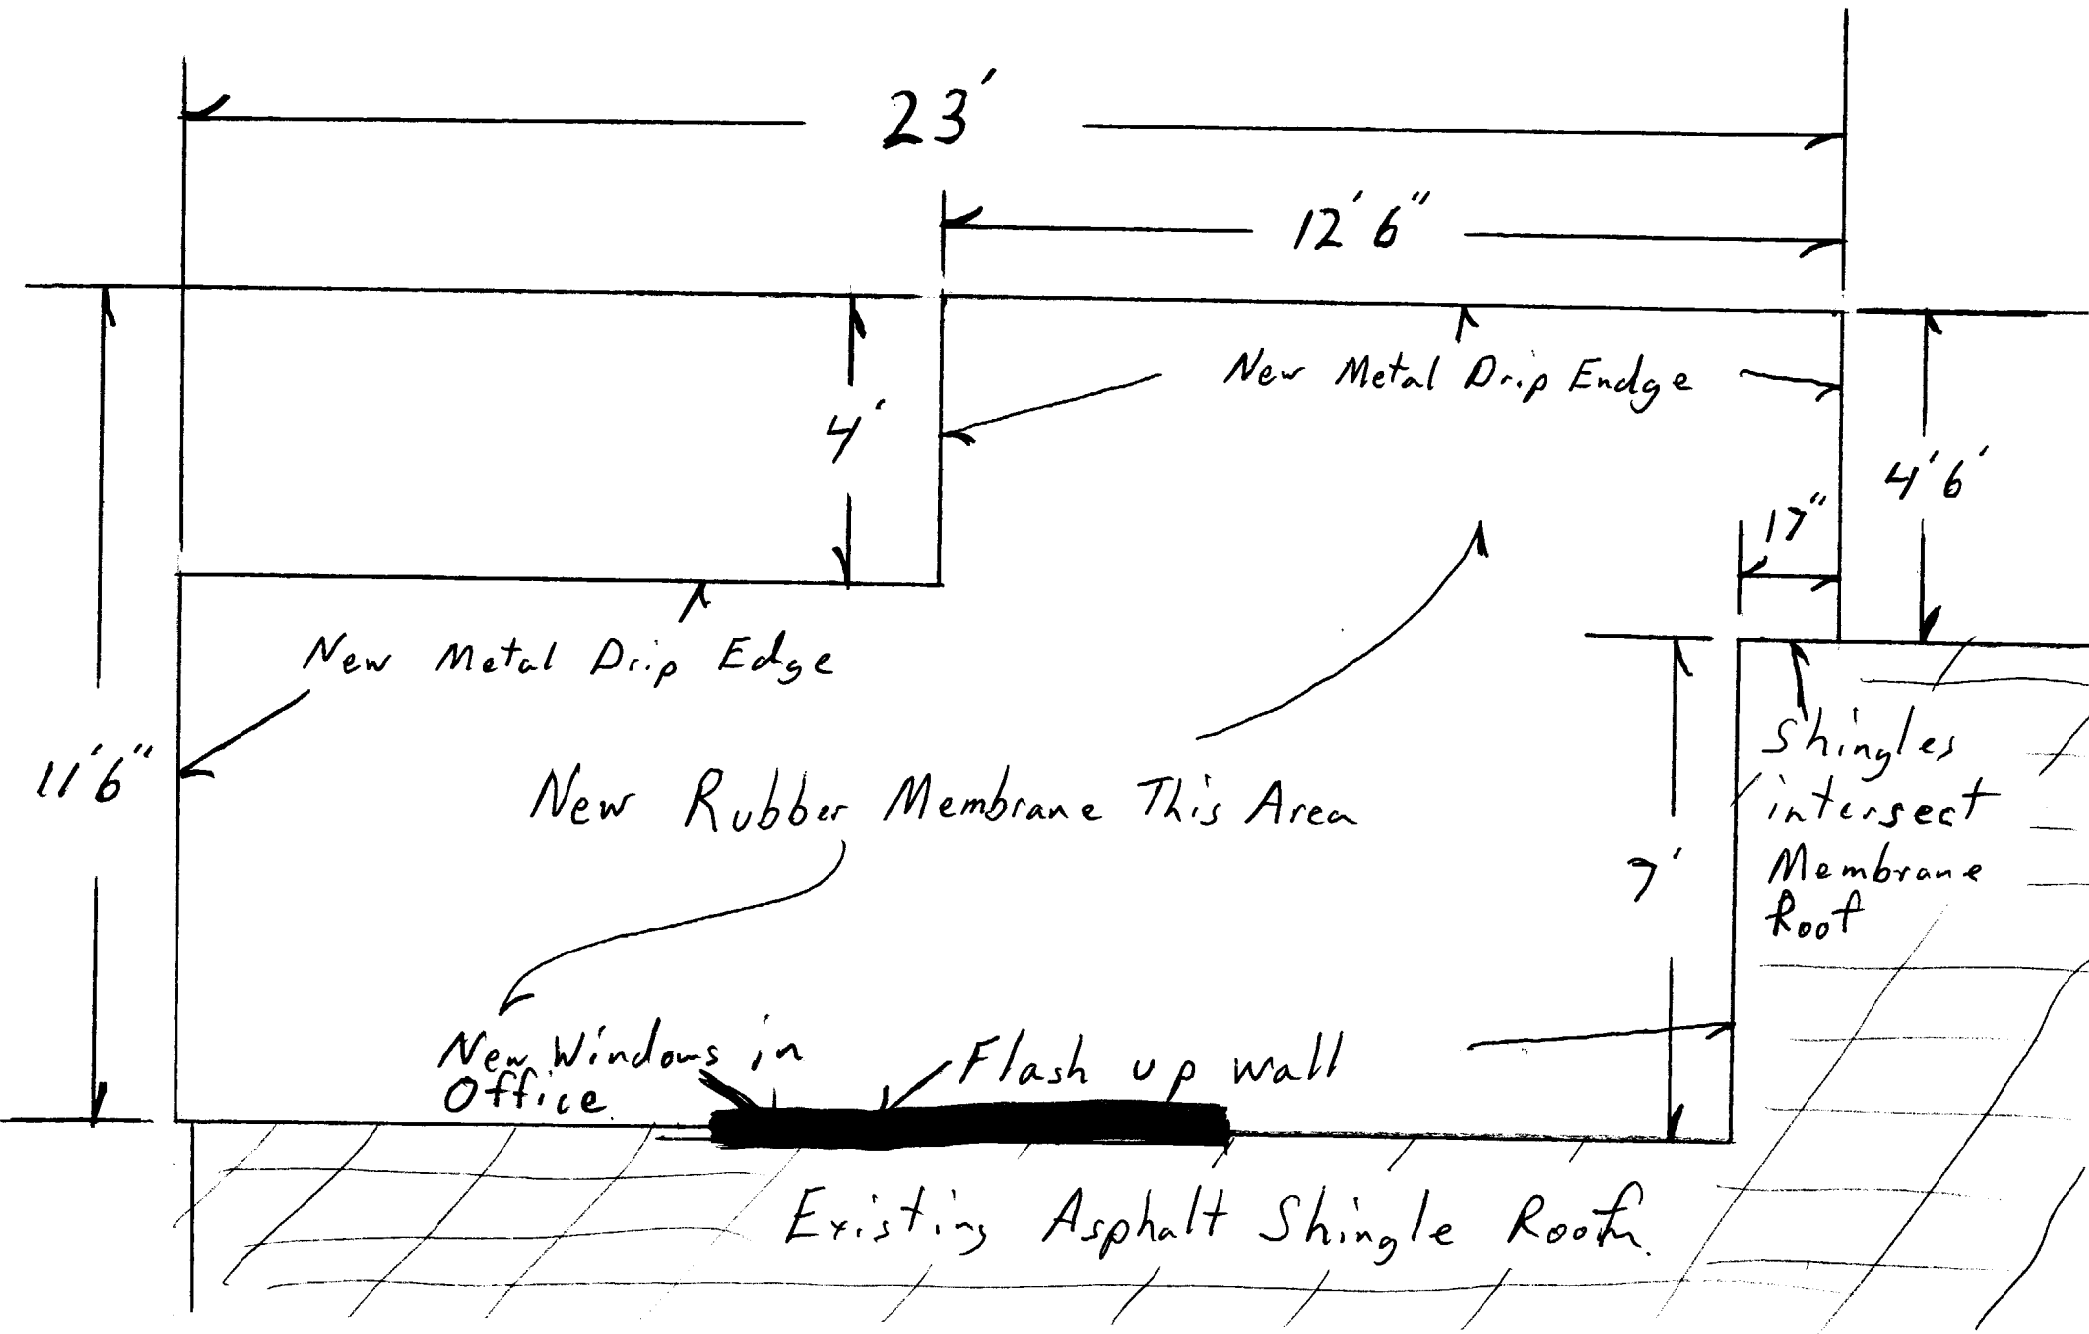 23'
12' 6"
New Metal Drip Endge
4'
4' 6'
17"
New Metal Drip Edge
11' 6"
New Rubber Membrane This Area
7'
Shingles
intersect
Membrane
Roof
New Windows in
Office
Flash up wall
Existing Asphalt Shingle Roof